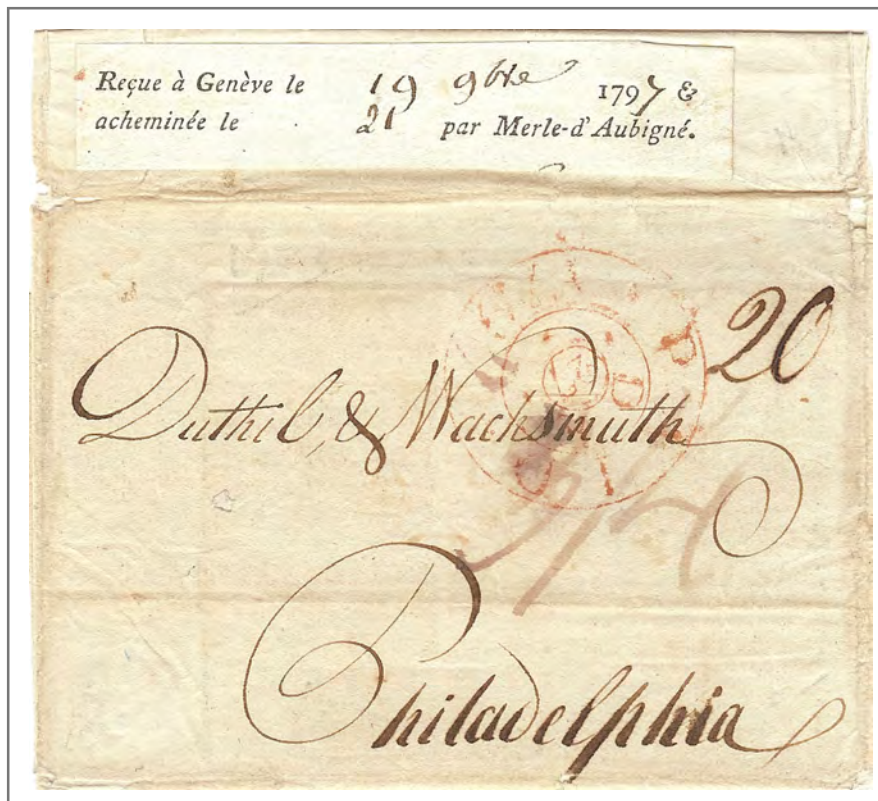 Reçue à Genève le 19 9bre 1797 &
acheminée le 21 par Merle-d'Aubigné.
20
Duthil & Wachsmuth
Philadelphia